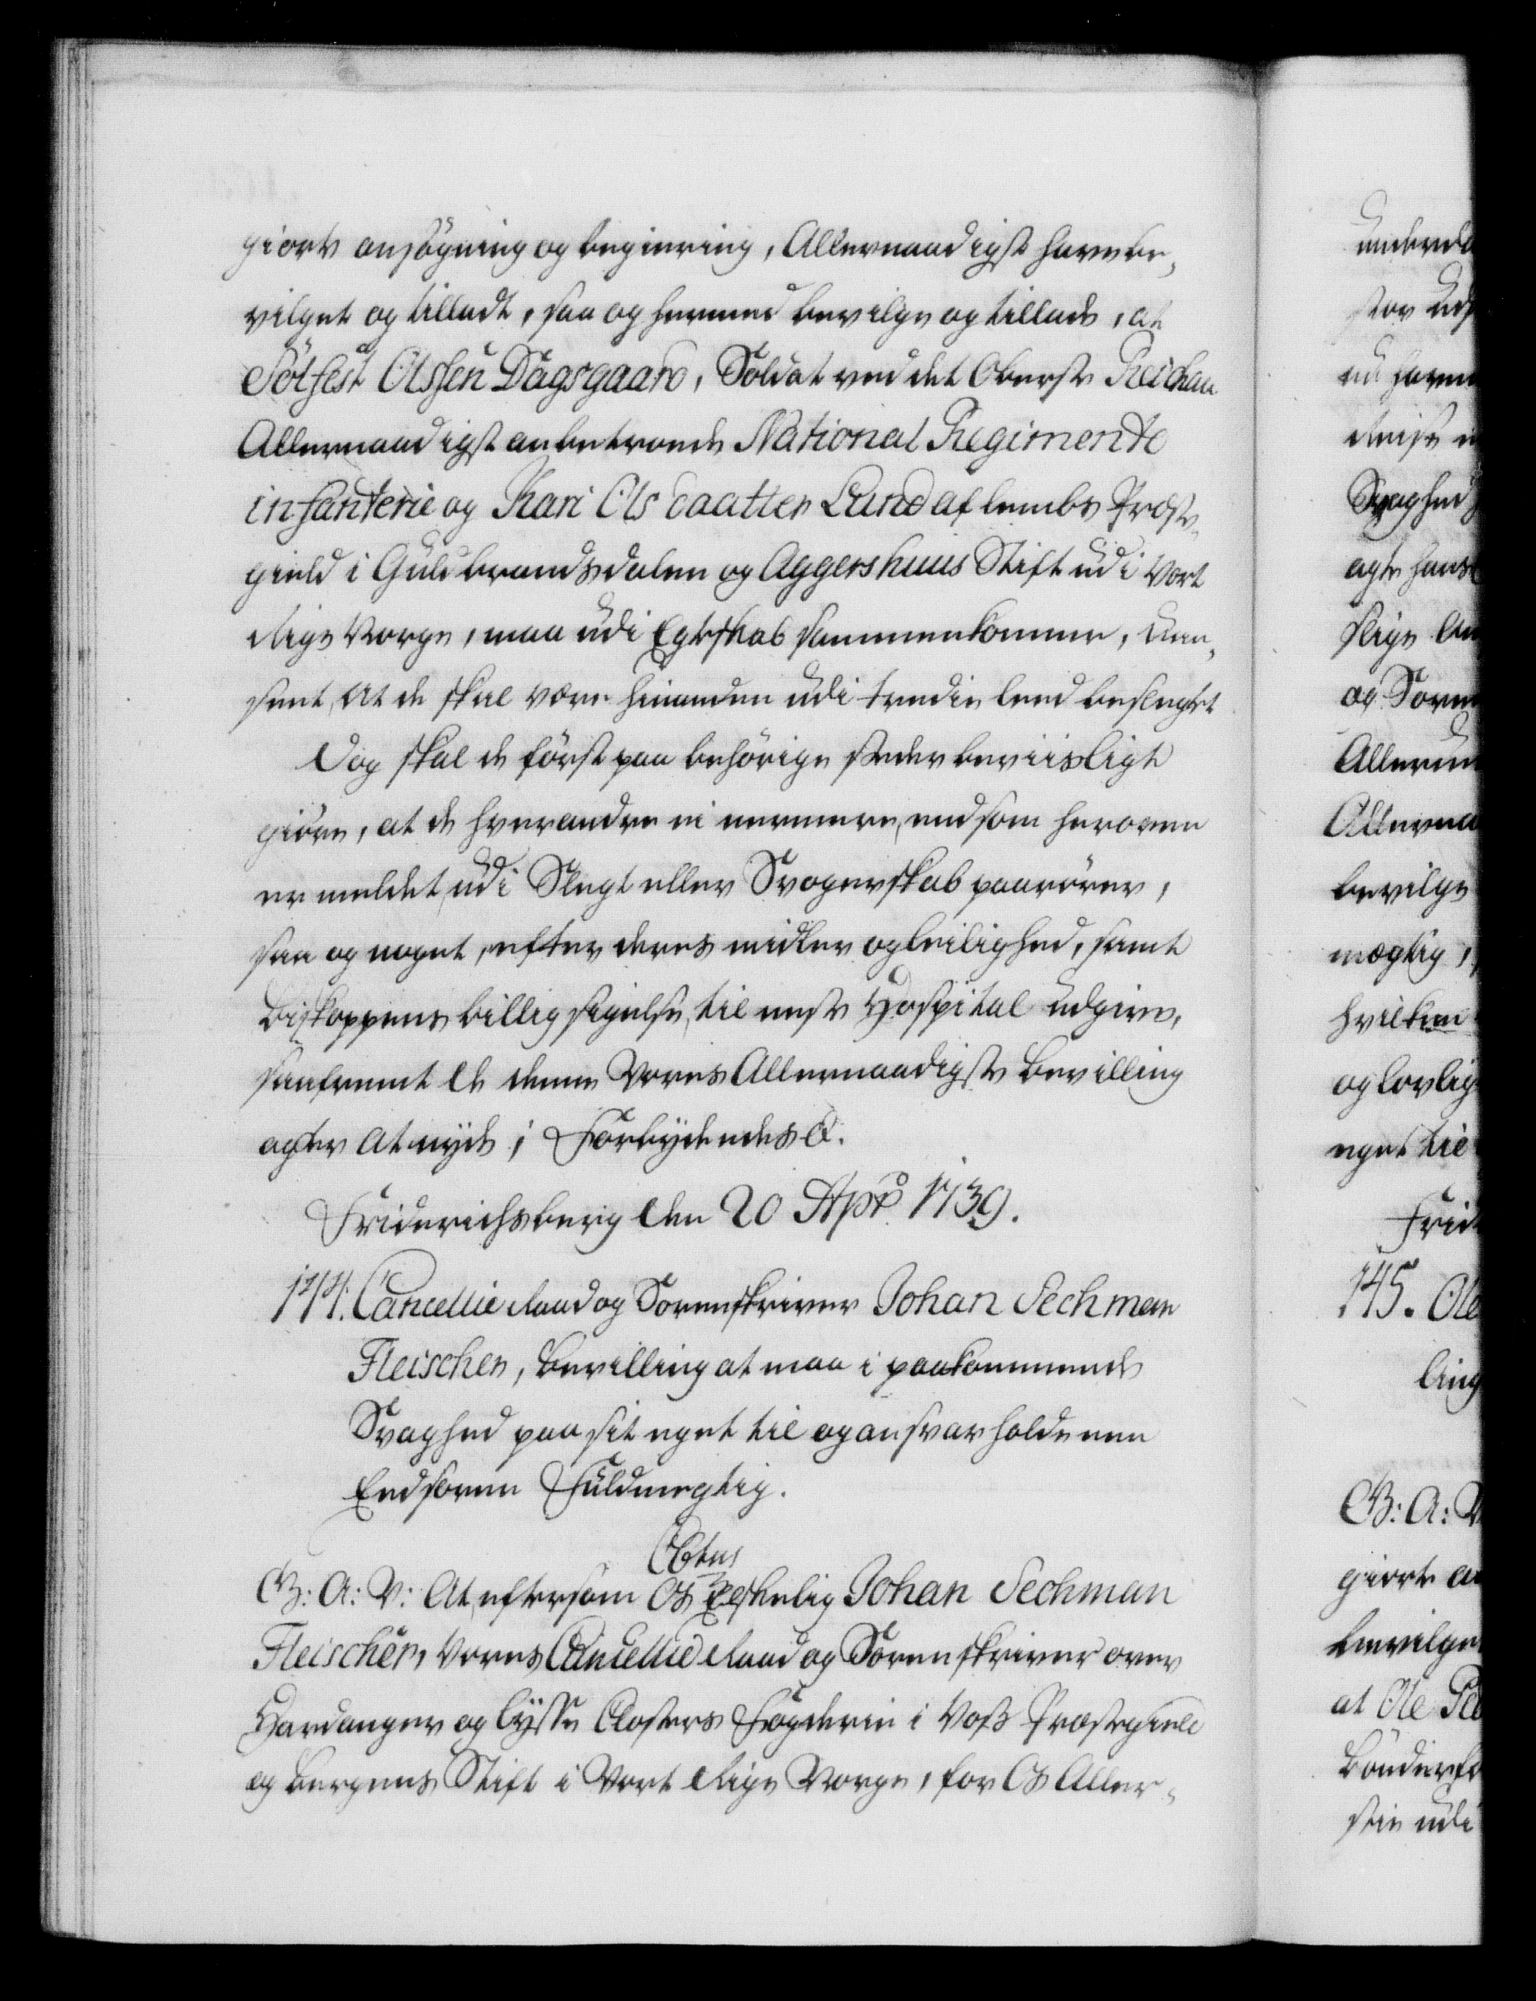 giorte ansøgning og begiering, Allernaadigst have be-
vilget og tilladt, saa og hermed bevilge og tillade, at
Sølfest Olssen Dagsgaard, Soldat ved det Oberste Reichau
Allernaadigst anbetroede National Regimente
infanterie og Kari Ols daatter Lund af Lembs Præste-
gield i Guldbrandsdalen og Aggershuus Stift udi Vort
Rige Norge, maa udi Egteskab sammenkomme, Uan-
seet, at de skal være hinanden udi tredie Leed beslegtet
Dog skal de først paa behørige steder beviisligt
giøre, at de hverandre ei nermere, end som heroven
er meldet, udi Slegt eller Svogerskab paarører,
saa og noget, efter deres midler og leilighed, samt
Biskoppens billig sigelse, til neste Hospital udgive,
saafremt de denne Vores Allernaadigste Bevilling
agter at nyde; Forbydendes &.
Friderichsberg den 20 Apr. 1739.
144. Cancellie Raad og Sorenskriver Johan Sechman
Fleischer, Bevilling at maa i paakommende
Svaghed paa sit eget til og ansvar holde een
Eedsoren Fuldmegtig.
Obtus
G: A: V: At, eftersom Os Elskelig Johan Sechman
Fleischer, Vores Cancellie Raad og Sorenskriver over
Hardanger og Lysse Closters Fogderie i Voss Præstegield
og Bergens Stift i Vort Rige Norge, for Os Aller-
145. Ole
bevilge
mægtig,
hvilken
og lovlig
eget til
Frid
G: A: V
giorte an
bevilge
at Ole Ped
stie udi